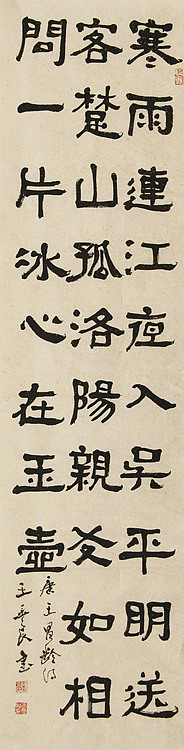 寒雨連江夜入吳平明送
客楚山孤洛陽親友如相
問一片冰心在玉壺
唐王昌齡詩
王良書